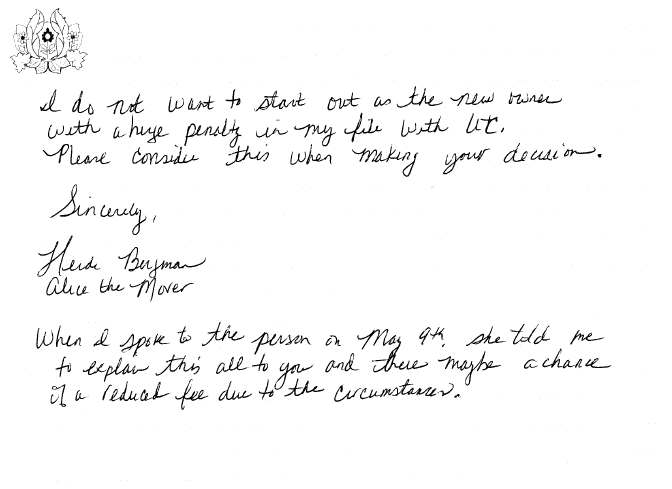 I do not want to start out as the new owner
with a huge penalty in my file with UTC.
Please consider this when making your decision.
Sincerely,
Heidi Bergman
Alice the Mover
When I spoke to the person on May 9th. she told me
to explain this all to you and there maybe a chance
of a reduced fee due to the circumstances.